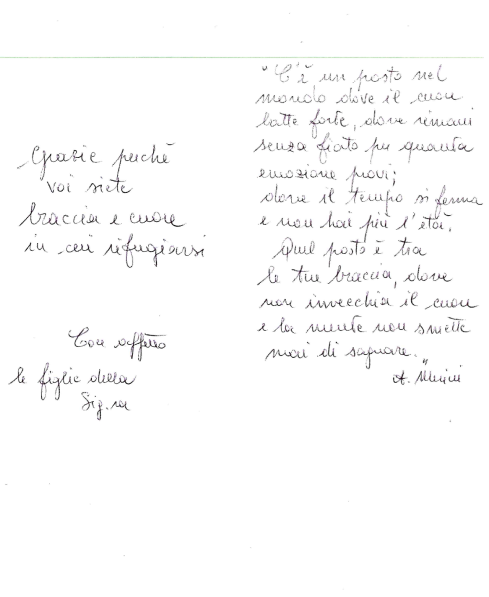 Grazie perché
voi siete
braccia e cuore
in cui rifugiarsi
Con affetto
le figlie della
Sig.ra
"C'è un posto nel
mondo dove il cuore
batte forte, dove rimani
senza fiato per quanta
emozione provi;
dove il tempo si ferma
e non hai più l'età.
Quel posto è tra
le tue braccia, dove
non invecchia il cuore
e la mente non smette
mai di sognare."
A. Merini